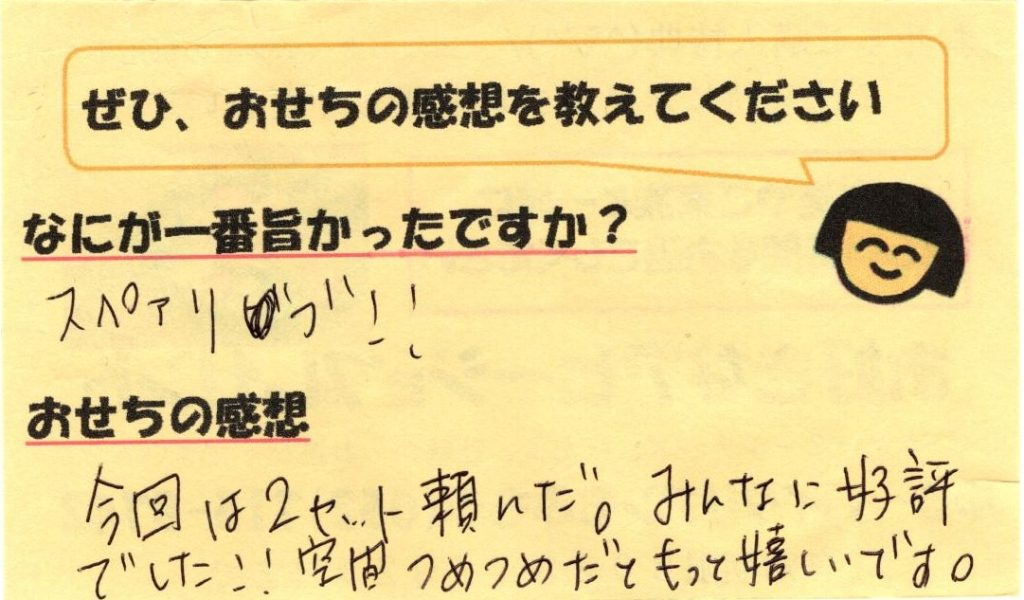 ぜひ、おせちの感想を教えてください
なにが一番旨かったですか？
スペアリブ!!
おせちの感想
今回は2セット頼んだ。みんなに好評
でした!!空間つめつめだともっと嬉しいです。